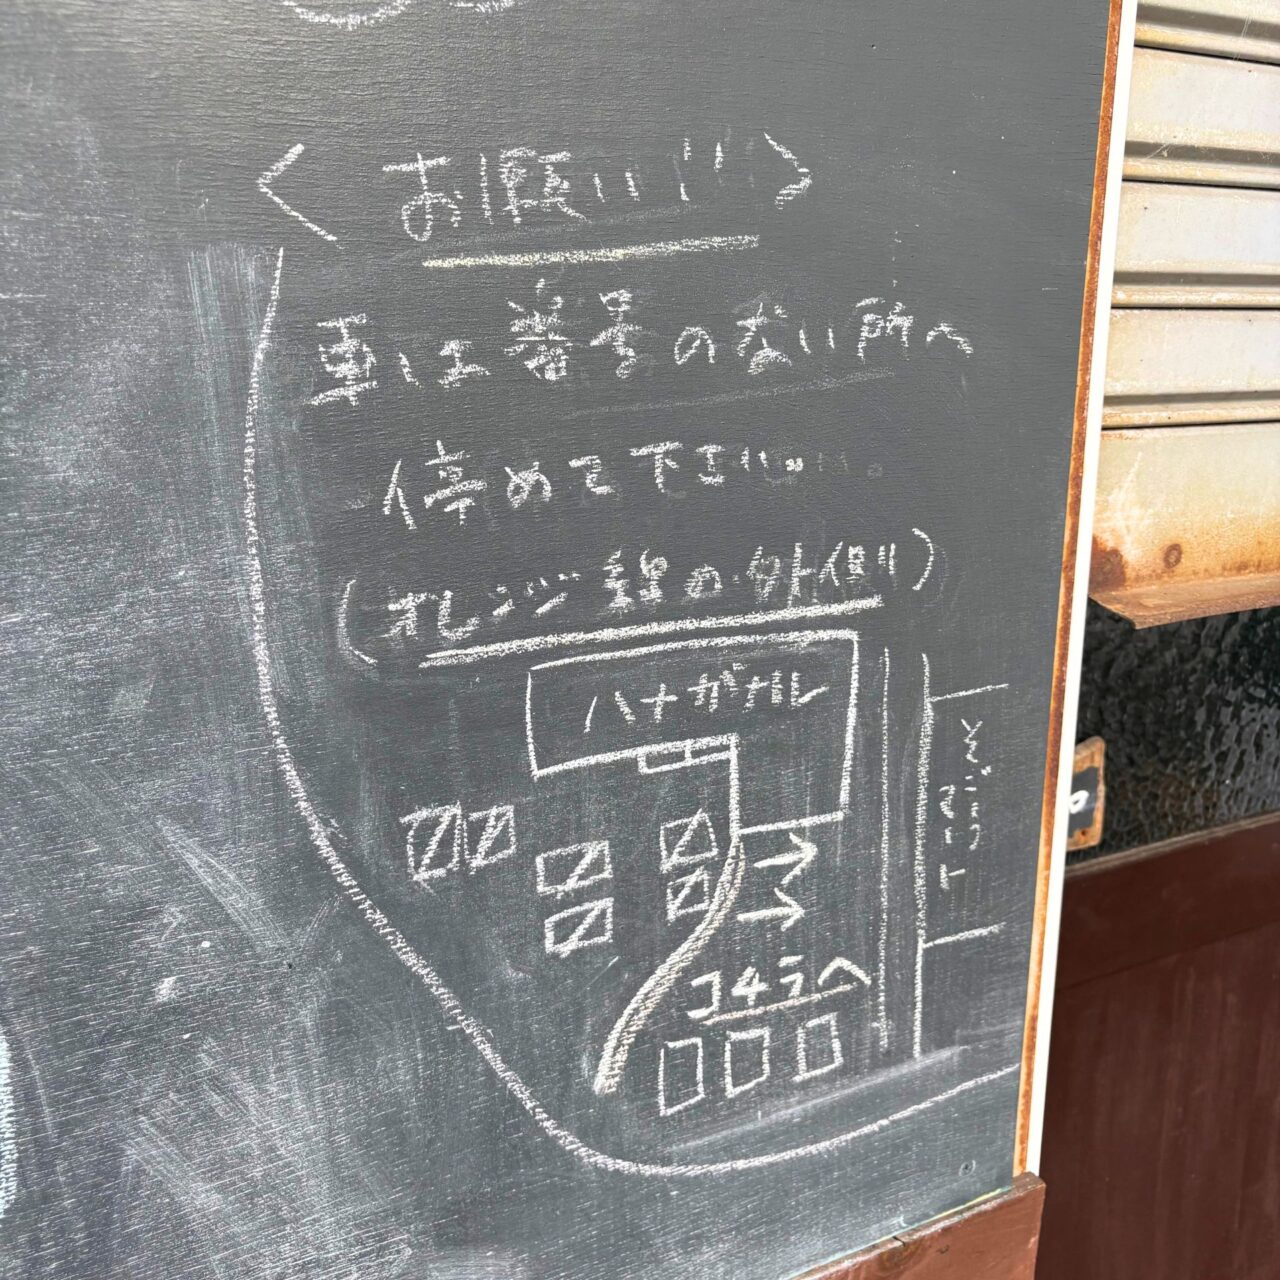 〈お願い!!!〉
車は番号のない所へ
停めて下さい。
(オレンジ線の外側)
ハナガナル
コチラへ